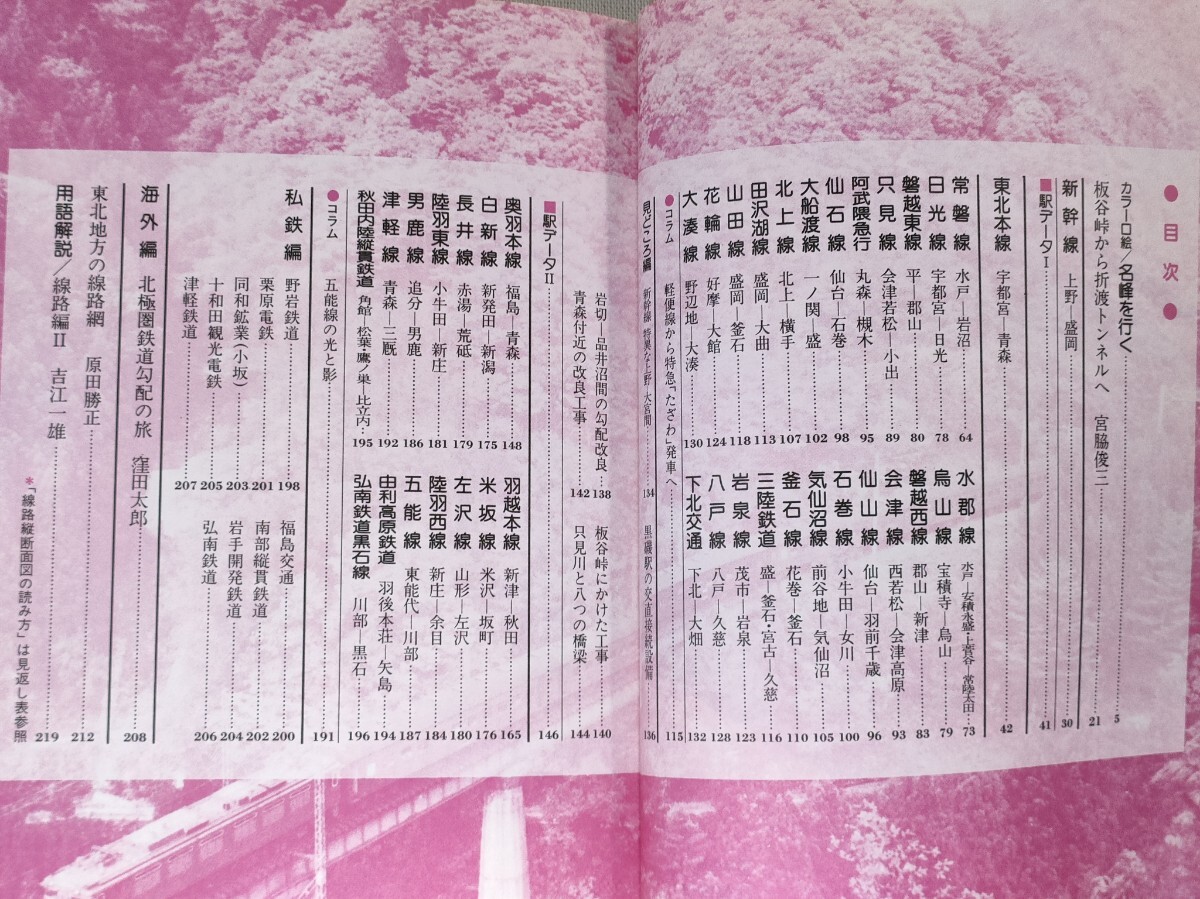 ●目次●
カラー口絵／名峰を行く 5
板谷峠から折渡トンネルへ 宮脇俊三 21
新幹線 上野―盛岡 30
■駅データⅠ 41
東北本線 宇都宮―青森 42
常磐線 水戸―岩沼 64
水郡線 水戸―安積永盛・上菅谷―常陸太田 73
日光線 宇都宮―日光 78
烏山線 宝積寺―烏山 79
磐越東線 平―郡山 80
磐越西線 郡山―新津 83
只見線 会津若松―小出 89
会津線 西若松―会津高原 93
阿武隈急行 丸森―槻木 95
仙山線 仙台―羽前千歳 96
仙石線 仙台―石巻 98
石巻線 小牛田―女川 100
大船渡線 一ノ関―盛 102
気仙沼線 前谷地―気仙沼 105
北上線 北上―横手 107
釜石線 花巻―釜石 110
田沢湖線 盛岡―大曲 113
三陸鉄道 盛―釜石・宮古―久慈 116
山田線 盛岡―釜石 118
岩泉線 茂市―岩泉 123
花輪線 好摩―大館 124
八戸線 八戸―久慈 128
大湊線 野辺地―大湊 130
下北交通 下北―大畑 132
●コラム 軽便線から特急「たざわ」発車へ 115
見どころ編 新幹線 特異な上野―大宮間 134
黒磯駅の交直接続設備 136
岩切―品井沼間の勾配改良 138
板谷峠にかけた工事 140
青森付近の改良工事 142
只見川と八つの橋梁 144
■駅データⅡ 146
奥羽本線 福島―青森 148
羽越本線 新津―秋田 165
白新線 新発田―新潟 175
米坂線 米沢―坂町 176
長井線 赤湯―荒砥 179
左沢線 山形―左沢 180
陸羽東線 小牛田―新庄 181
陸羽西線 新庄―余目 184
男鹿線 追分―男鹿 186
五能線 東能代―川部 187
津軽線 青森―三厩 192
由利高原鉄道 羽後本荘―矢島 194
秋田内陸縦貫鉄道 角館―松葉・鷹ノ巣―比立内 195
弘南鉄道黒石線 川部―黒石 196
●コラム 五能線の光と影 191
私鉄編 野岩鉄道 198
福島交通 200
栗原電鉄 201
南部縦貫鉄道 202
同和鉱業(小坂) 203
岩手開発鉄道 204
十和田観光電鉄 205
弘南鉄道 206
津軽鉄道 207
海外編 北極圏鉄道勾配の旅 窪田太郎 208
東北地方の線路網 原田勝正 212
用語解説／線路編Ⅱ 吉江一雄 219
＊「線路縦断面図の読み方」は見返し表参照